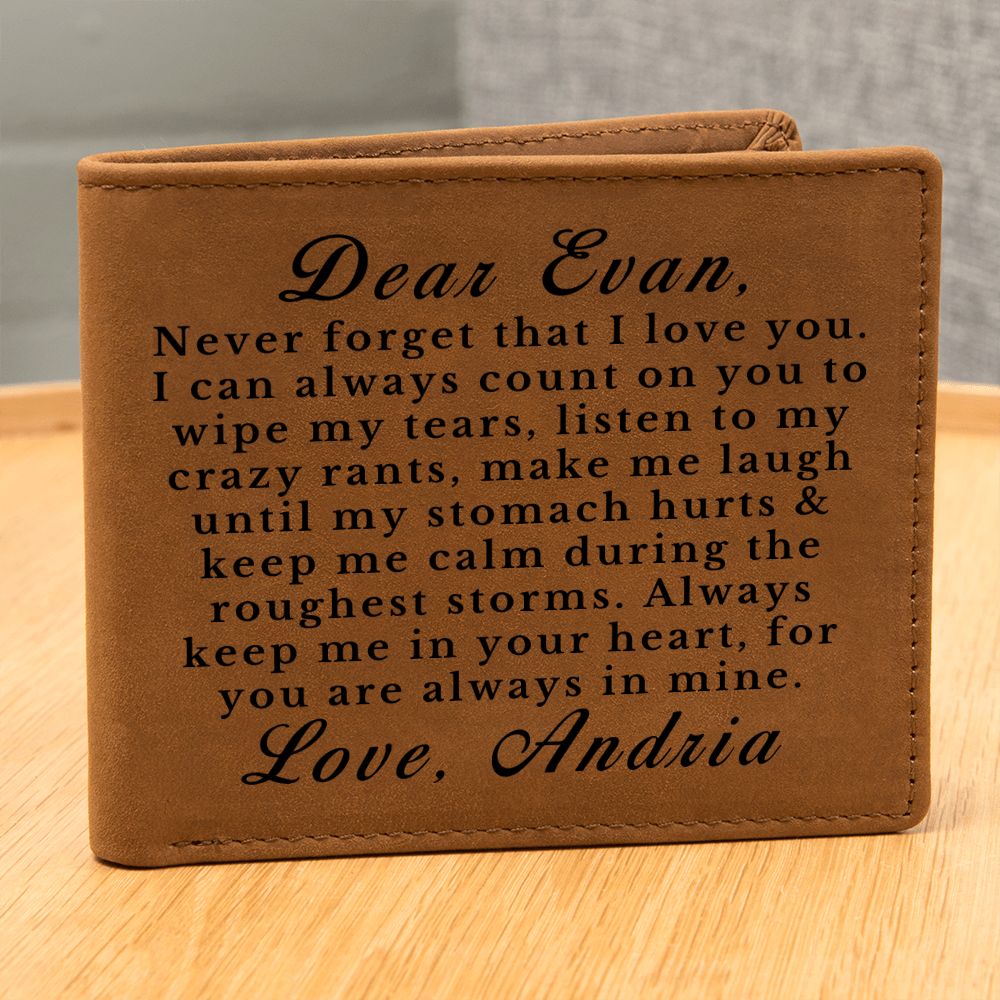 Dear Evan,
Never forget that I love you.
I can always count on you to
wipe my tears, listen to my
crazy rants, make me laugh
until my stomach hurts &
keep me calm during the
roughest storms. Always
keep me in your heart, for
you are always in mine.
Love, Andria